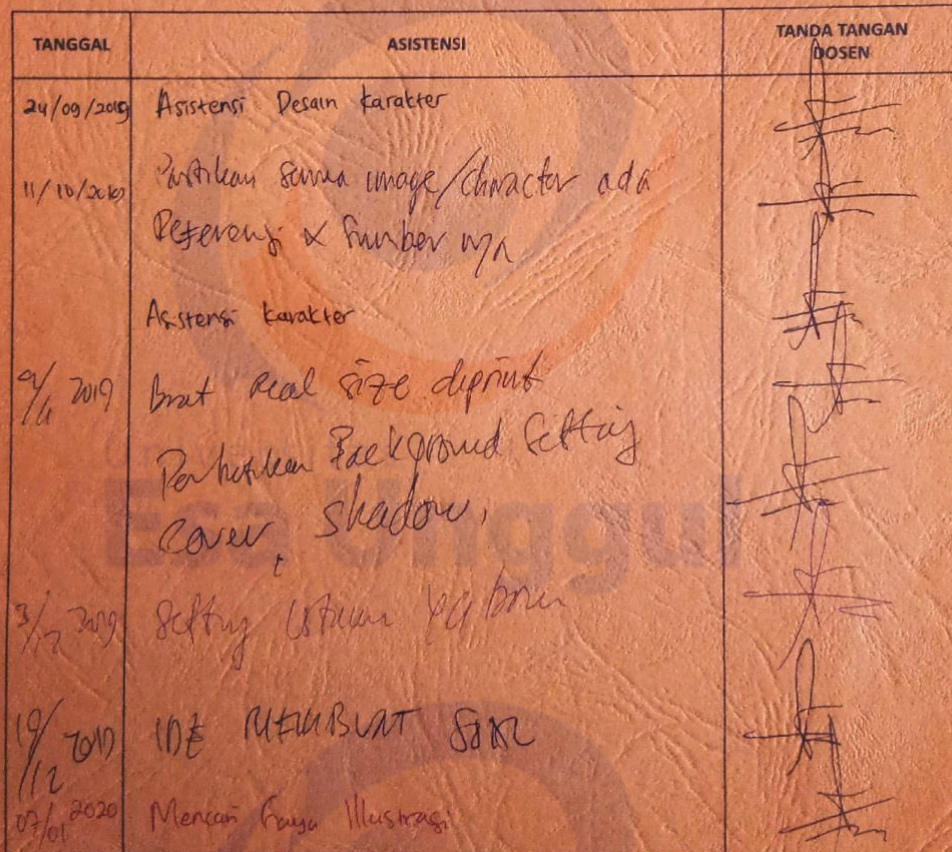 TANGGAL ASISTENSI TANDA TANGAN
DOSEN
24/09/2019 Asistensi Desain karakter
11/10/2019 Pastikan semua image/character ada
Referensi & Sumber nya
Asistensi karakter
2019 Buat Real size diprint
Perhatikan Background Setting
cover, shadow,
Universitas
Esa Unggul
3/12 2019 Setting yg
19/12 2019 IDE MEMBUAT
07/01 2020 Mencari Gaya Illustrasi